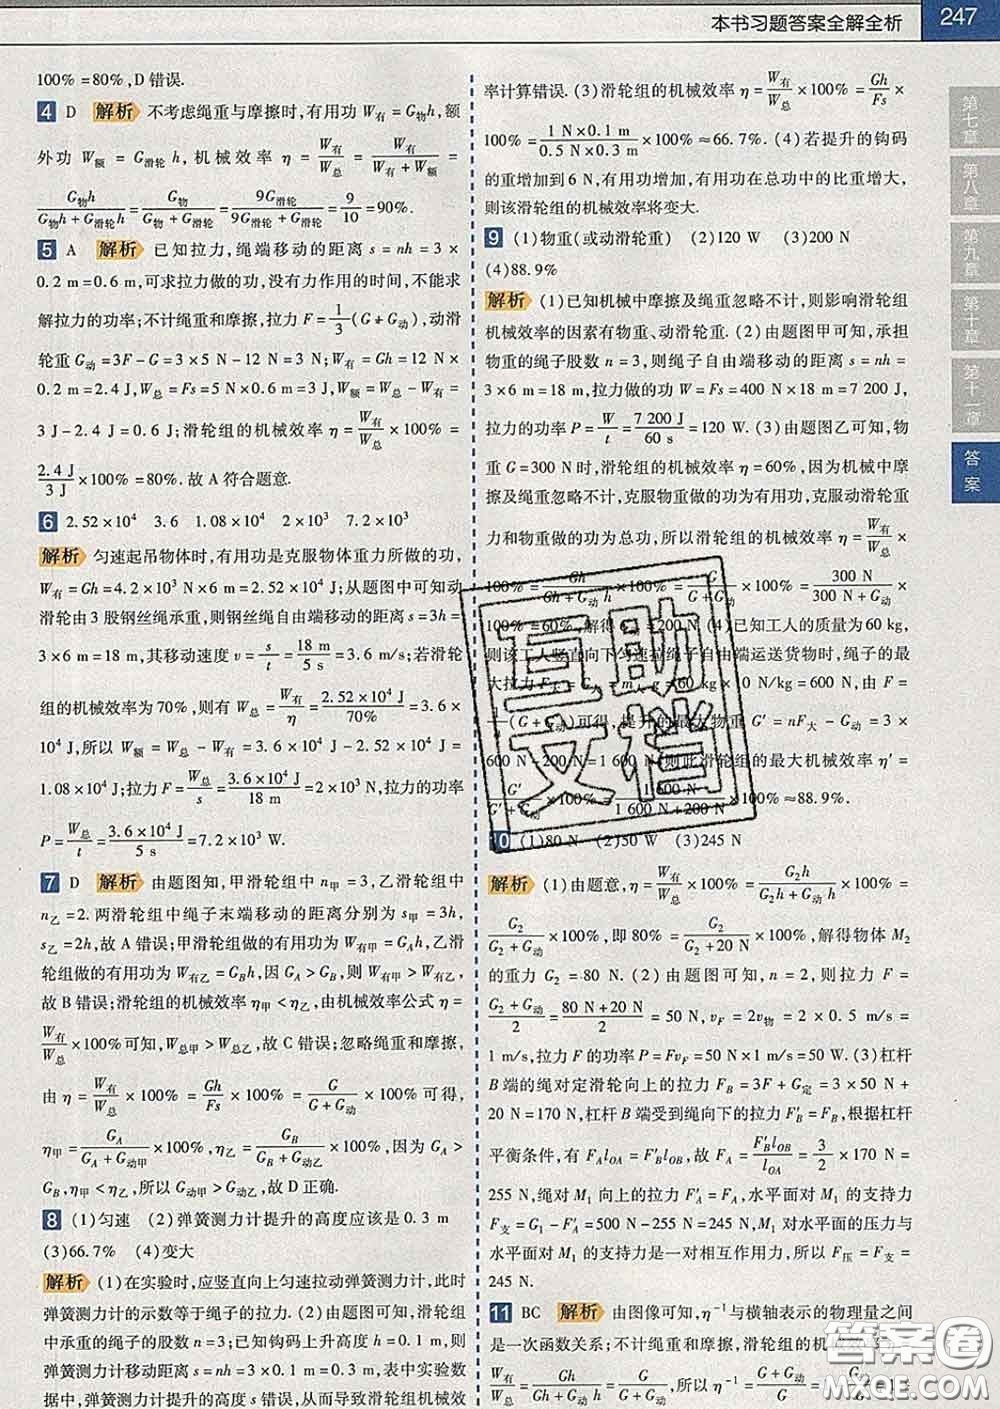 本书习题答案全解全析
247
100% = 80%, D 错误.
4 D 解析 不考虑绳重与摩擦时,有用功 W有 = G物h, 额
外功 W额 = G滑轮 h, 机械效率 η = W有/W总 = W有/(W有 + W额) =
G物h/(G物h + G滑轮h) = G物/(G物 + G滑轮) = 9G滑轮/(9G滑轮 + G滑轮) = 9/10 = 90%.
5 A 解析 已知拉力,绳端移动的距离 s = nh = 3 ×
0.2 m = 0.6 m, 可求拉力做的功,没有力作用的时间,不能求
解拉力的功率;不计绳重和摩擦,拉力 F = 1/3(G + G动), 动滑
轮重 G动 = 3F - G = 3 × 5 N - 12 N = 3 N; W有 = Gh = 12 N ×
0.2 m = 2.4 J, W总 = Fs = 5 N × 0.6 m = 3 J, W额 = W总 - W有 =
3 J - 2.4 J = 0.6 J; 滑轮组的机械效率 η = W有/W总 × 100% =
2.4 J/3 J × 100% = 80%. 故 A 符合题意.
6 2.52×10⁴ 3.6 1.08×10⁴ 2×10³ 7.2×10³
解析 匀速起吊物体时,有用功是克服物体重力所做的功,
W有 = Gh = 4.2×10³ N×6 m = 2.52×10⁴ J; 从题图中可知动
滑轮由 3 股钢丝绳承重,则钢丝绳自由端移动的距离 s = 3h =
3×6 m = 18 m, 其移动速度 v = s/t = 18 m/5 s = 3.6 m/s; 若滑轮
组的机械效率为 70%, 则有 W总 = W有/η = 2.52×10⁴ J/70% = 3.6×
10⁴ J, 所以 W额 = W总 - W有 = 3.6×10⁴ J - 2.52×10⁴ J =
1.08×10⁴ J; 拉力 F = W总/s = 3.6×10⁴ J/18 m = 2×10³ N, 拉力的功率
P = W总/t = 3.6×10⁴ J/5 s = 7.2×10³ W.
7 D 解析 由题图知,甲滑轮组中 n甲 = 3, 乙滑轮组中
n乙 = 2. 两滑轮组中绳子末端移动的距离分别为 s甲 = 3h,
s乙 = 2h, 故 A 错误;甲滑轮组做的有用功为 W有甲 = GAh, 乙滑
轮组做的有用功为 W有乙 = GBh, 因 GA > GB, 则 W有甲 > W有乙,
故 B 错误;滑轮组的机械效率 η甲 < η乙, 由机械效率公式 η =
W有/W总 × 100% 可知, W总甲 > W总乙, 故 C 错误;忽略绳重和摩擦,
由 η = W有/W总 × 100% = Gh/Fs × 100% = G/(G + G动) × 100% 可得,
η甲 = GA/(GA + G动甲) × 100%, η乙 = GB/(GB + G动乙) × 100%, 因为 GA >
GB, η甲 < η乙, 所以 G动甲 > G动乙, 故 D 正确.
8 (1)匀速 (2)弹簧测力计提升的高度应该是 0.3 m
(3)66.7% (4)变大
解析 (1)在实验时,应竖直向上匀速拉动弹簧测力计,此时
弹簧测力计的示数等于绳子的拉力. (2)由题图可知,滑轮组
中承重的绳子的股数 n = 3; 已知钩码上升高度 h = 0.1 m, 则
弹簧测力计移动距离 s = nh = 3×0.1 m = 0.3 m, 表中实验数
据中,弹簧测力计提升的高度 s 错误,从而导致滑轮组机械效
率计算错误. (3)滑轮组的机械效率 η = W有/W总 × 100% = Gh/Fs ×
100% = 1 N×0.1 m/0.5 N×0.3 m × 100% ≈ 66.7%. (4)若提升的钩码
的重增加到 6 N, 有用功增加,有用功在总功中的比重增大,
则该滑轮组的机械效率将变大.
9 (1)物重(或动滑轮重) (2)120 W (3)200 N
(4)88.9%
解析 (1)已知机械中摩擦及绳重忽略不计,则影响滑轮组
机械效率的因素有物重、动滑轮重. (2)由题图甲可知,承担
物重的绳子股数 n = 3, 则绳子自由端移动的距离 s = nh =
3×6 m = 18 m, 拉力做的功 W = Fs = 400 N×18 m = 7 200 J,
拉力的功率 P = W/t = 7 200 J/60 s = 120 W. (3)由题图乙可知,物
重 G = 300 N 时,滑轮组的机械效率 η = 60%, 因为机械中摩
擦及绳重忽略不计,克服物重做的功为有用功,克服动滑轮重
力和物重做的功为总功,所以滑轮组的机械效率 η = W有/W总 ×
100% = Gh/(Gh + G动 h) × 100% = G/(G + G动) × 100% = 300 N/(300 N + G动) ×
100% = 60%, 解得 G动 = 200 N. (4)已知工人的质量为 60 kg,
则该工人竖直向下匀速拉绳子自由端运送货物时,绳子的最
大拉力 F大 = G人 = m人 g = 60 kg × 10 N/kg = 600 N, 由 F =
1/3(G + G动)可得,提升的最大物重 G′ = nF大 - G动 = 3 ×
600 N - 200 N = 1 600 N, 则此滑轮组的最大机械效率 η′ =
G′/(G′ + G动) × 100% = 1 600 N/(1 600 N + 200 N) × 100% ≈ 88.9%.
10 (1)80 N (2)50 W (3)245 N
解析 (1)由题意, η = W有/W总 × 100% = G₂h/(G₂h + G动h) × 100% =
G₂/(G₂ + G动) × 100%, 即 80% = G₂/(G₂ + 20 N) × 100%, 解得物体 M₂
的重力 G₂ = 80 N. (2)由题图可知, n = 2, 则拉力 F =
(G₂ + G动)/2 = (80 N + 20 N)/2 = 50 N, vF = 2v物 = 2 × 0.5 m/s =
1 m/s, 拉力 F 的功率 P = FvF = 50 N×1 m/s = 50 W. (3)杠杆
B 端的绳对定滑轮向上的拉力 FB = 3F + G定 = 3×50 N +
20 N = 170 N, 杠杆 B 端受到绳向下的拉力 F′B = FB, 根据杠杆
平衡条件,有 FAlOA = F′BlOB, 故 FA = F′BlOB/lOA = 3/2 × 170 N =
255 N, 绳对 M₁ 向上的拉力 F′A = FA, 水平面对 M₁ 的支持力
F支 = G₁ - F′A = 500 N - 255 N = 245 N, M₁ 对水平面的压力与
水平面对 M₁ 的支持力是一对相互作用力,所以 F压 = F支 =
245 N.
11 BC 解析 由图像可知, η⁻¹ 与横轴表示的物理量之间
是一次函数关系;不计绳重和摩擦,滑轮组的机械效率 η =
W有/W总 = Gh/(Gh + G动 h) = G/(G + G动), 所以 η⁻¹ = (G + G动)/G =
第七章
第八章
第九章
第十章
第十一章
答案
互助
文档
答案圈